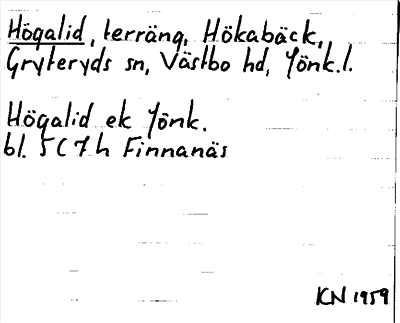 Högalid, terräng, Hökabäck,
Gryteryds sn, Västbo hd, Jönk.l.
Högalid ek Jönk.
bl. 5C7h Finnanäs
KN 1959